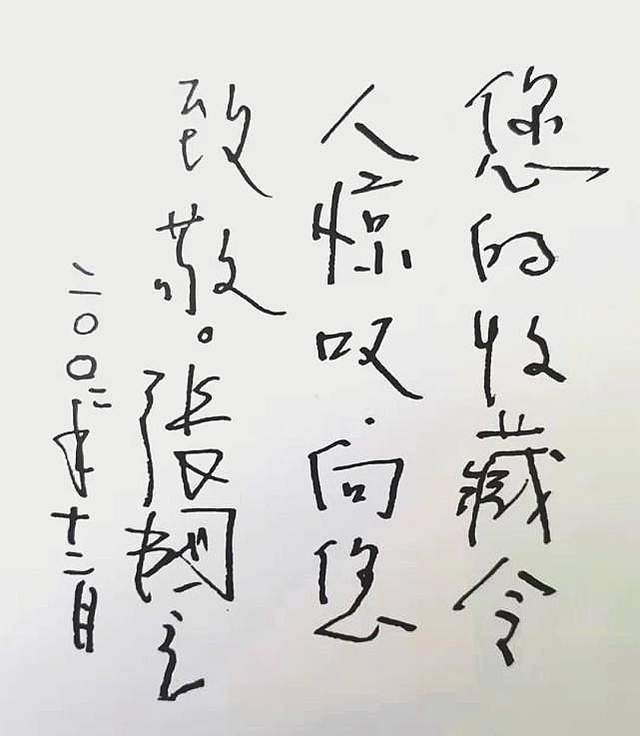 您的收藏令
人惊叹.向您
致敬。張國立
二〇〇二年十二月